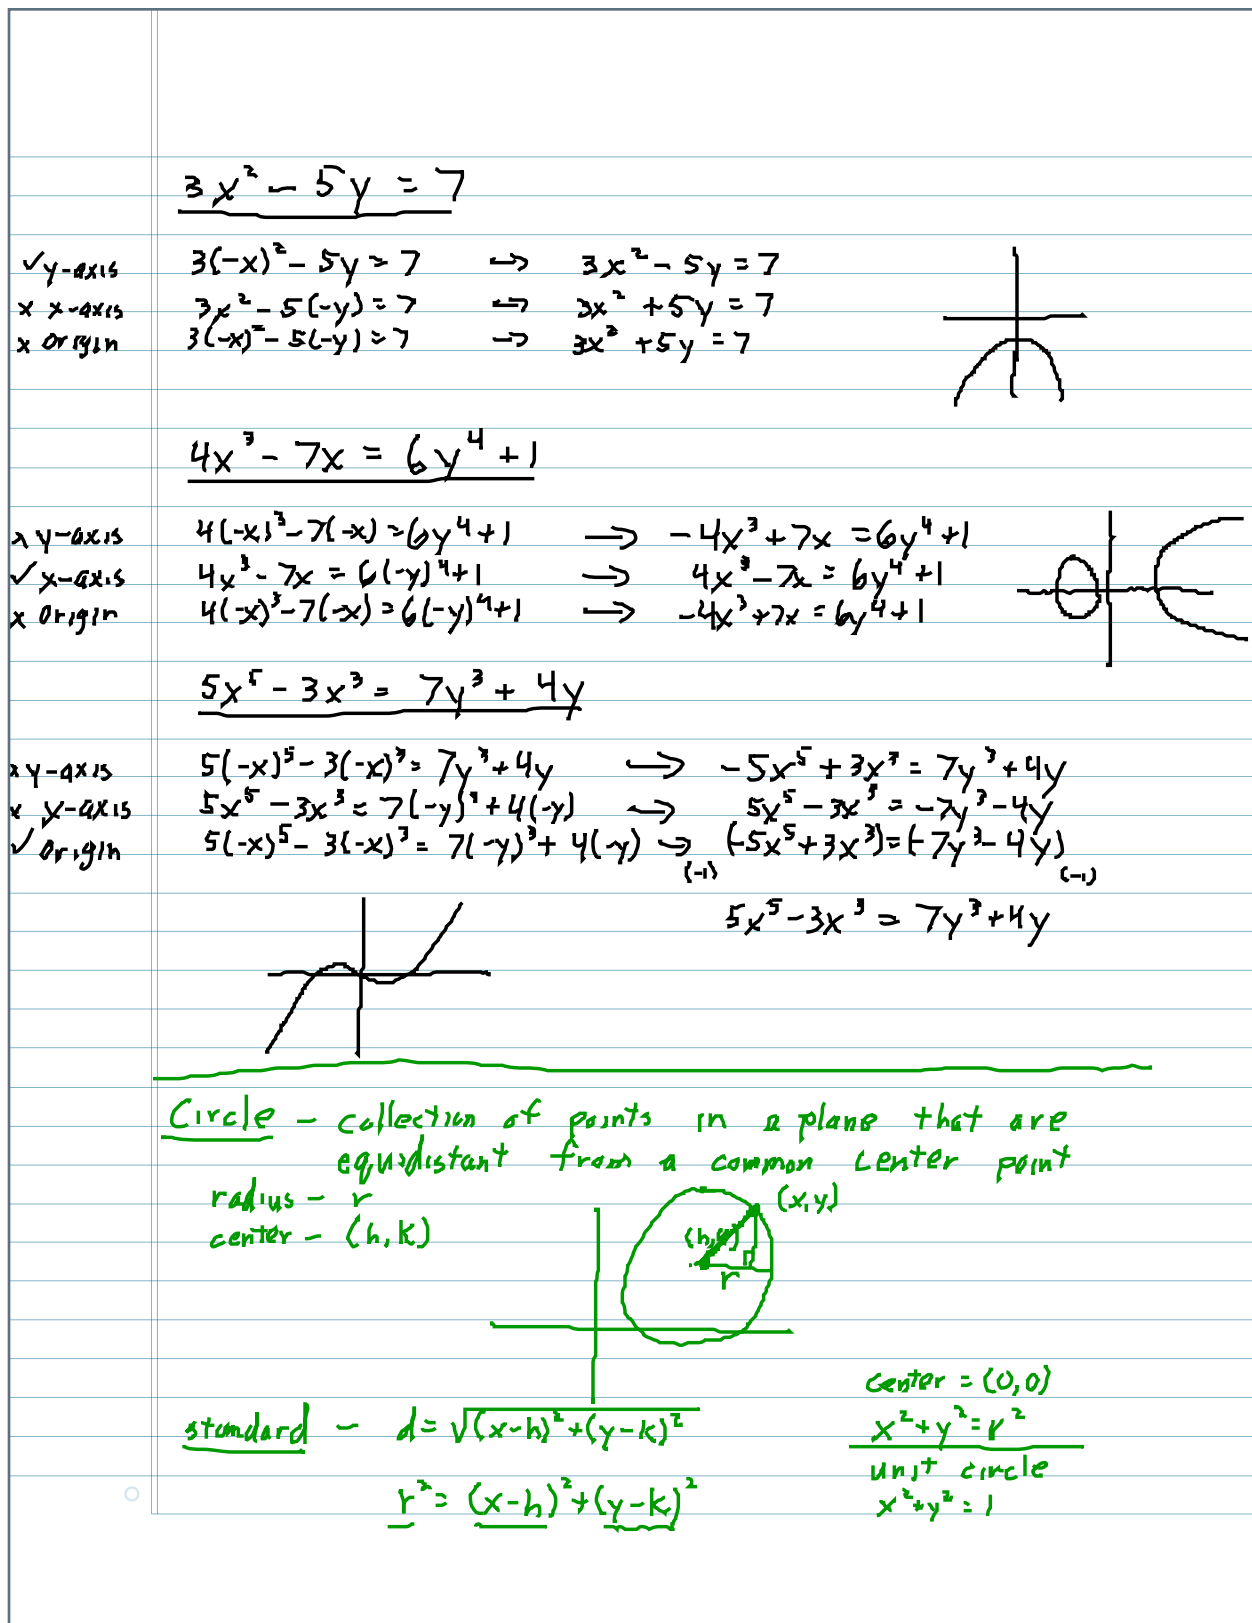 3x² - 5y = 7
✓ y-axis 3(-x)² - 5y = 7 → 3x² - 5y = 7
x x-axis 3x² - 5(-y) = 7 → 3x² + 5y = 7
x origin 3(-x)² - 5(-y) = 7 → 3x² + 5y = 7
4x³ - 7x = 6y⁴ + 1
x y-axis 4(-x)³ - 7(-x) = 6y⁴ + 1 → -4x³ + 7x = 6y⁴ + 1
✓ x-axis 4x³ - 7x = 6(-y)⁴ + 1 → 4x³ - 7x = 6y⁴ + 1
x origin 4(-x)³ - 7(-x) = 6(-y)⁴ + 1 → -4x³ + 7x = 6y⁴ + 1
5x⁵ - 3x³ = 7y³ + 4y
x y-axis 5(-x)⁵ - 3(-x)³ = 7y³ + 4y → -5x⁵ + 3x³ = 7y³ + 4y
x x-axis 5x⁵ - 3x³ = 7(-y)³ + 4(-y) → 5x⁵ - 3x³ = -7y³ - 4y
✓ origin 5(-x)⁵ - 3(-x)³ = 7(-y)³ + 4(-y) → (-5x⁵ + 3x³) = (-7y³ - 4y)
(-1) (-1)
5x⁵ - 3x³ = 7y³ + 4y
Circle - collection of points in a plane that are
equidistant from a common center point
radius - r
center - (h, k)
(x, y)
(h, k)
r
standard - d = √((x-h)² + (y-k)²)
r² = (x-h)² + (y-k)²
center = (0, 0)
x² + y² = r²
unit circle
x² + y² = 1